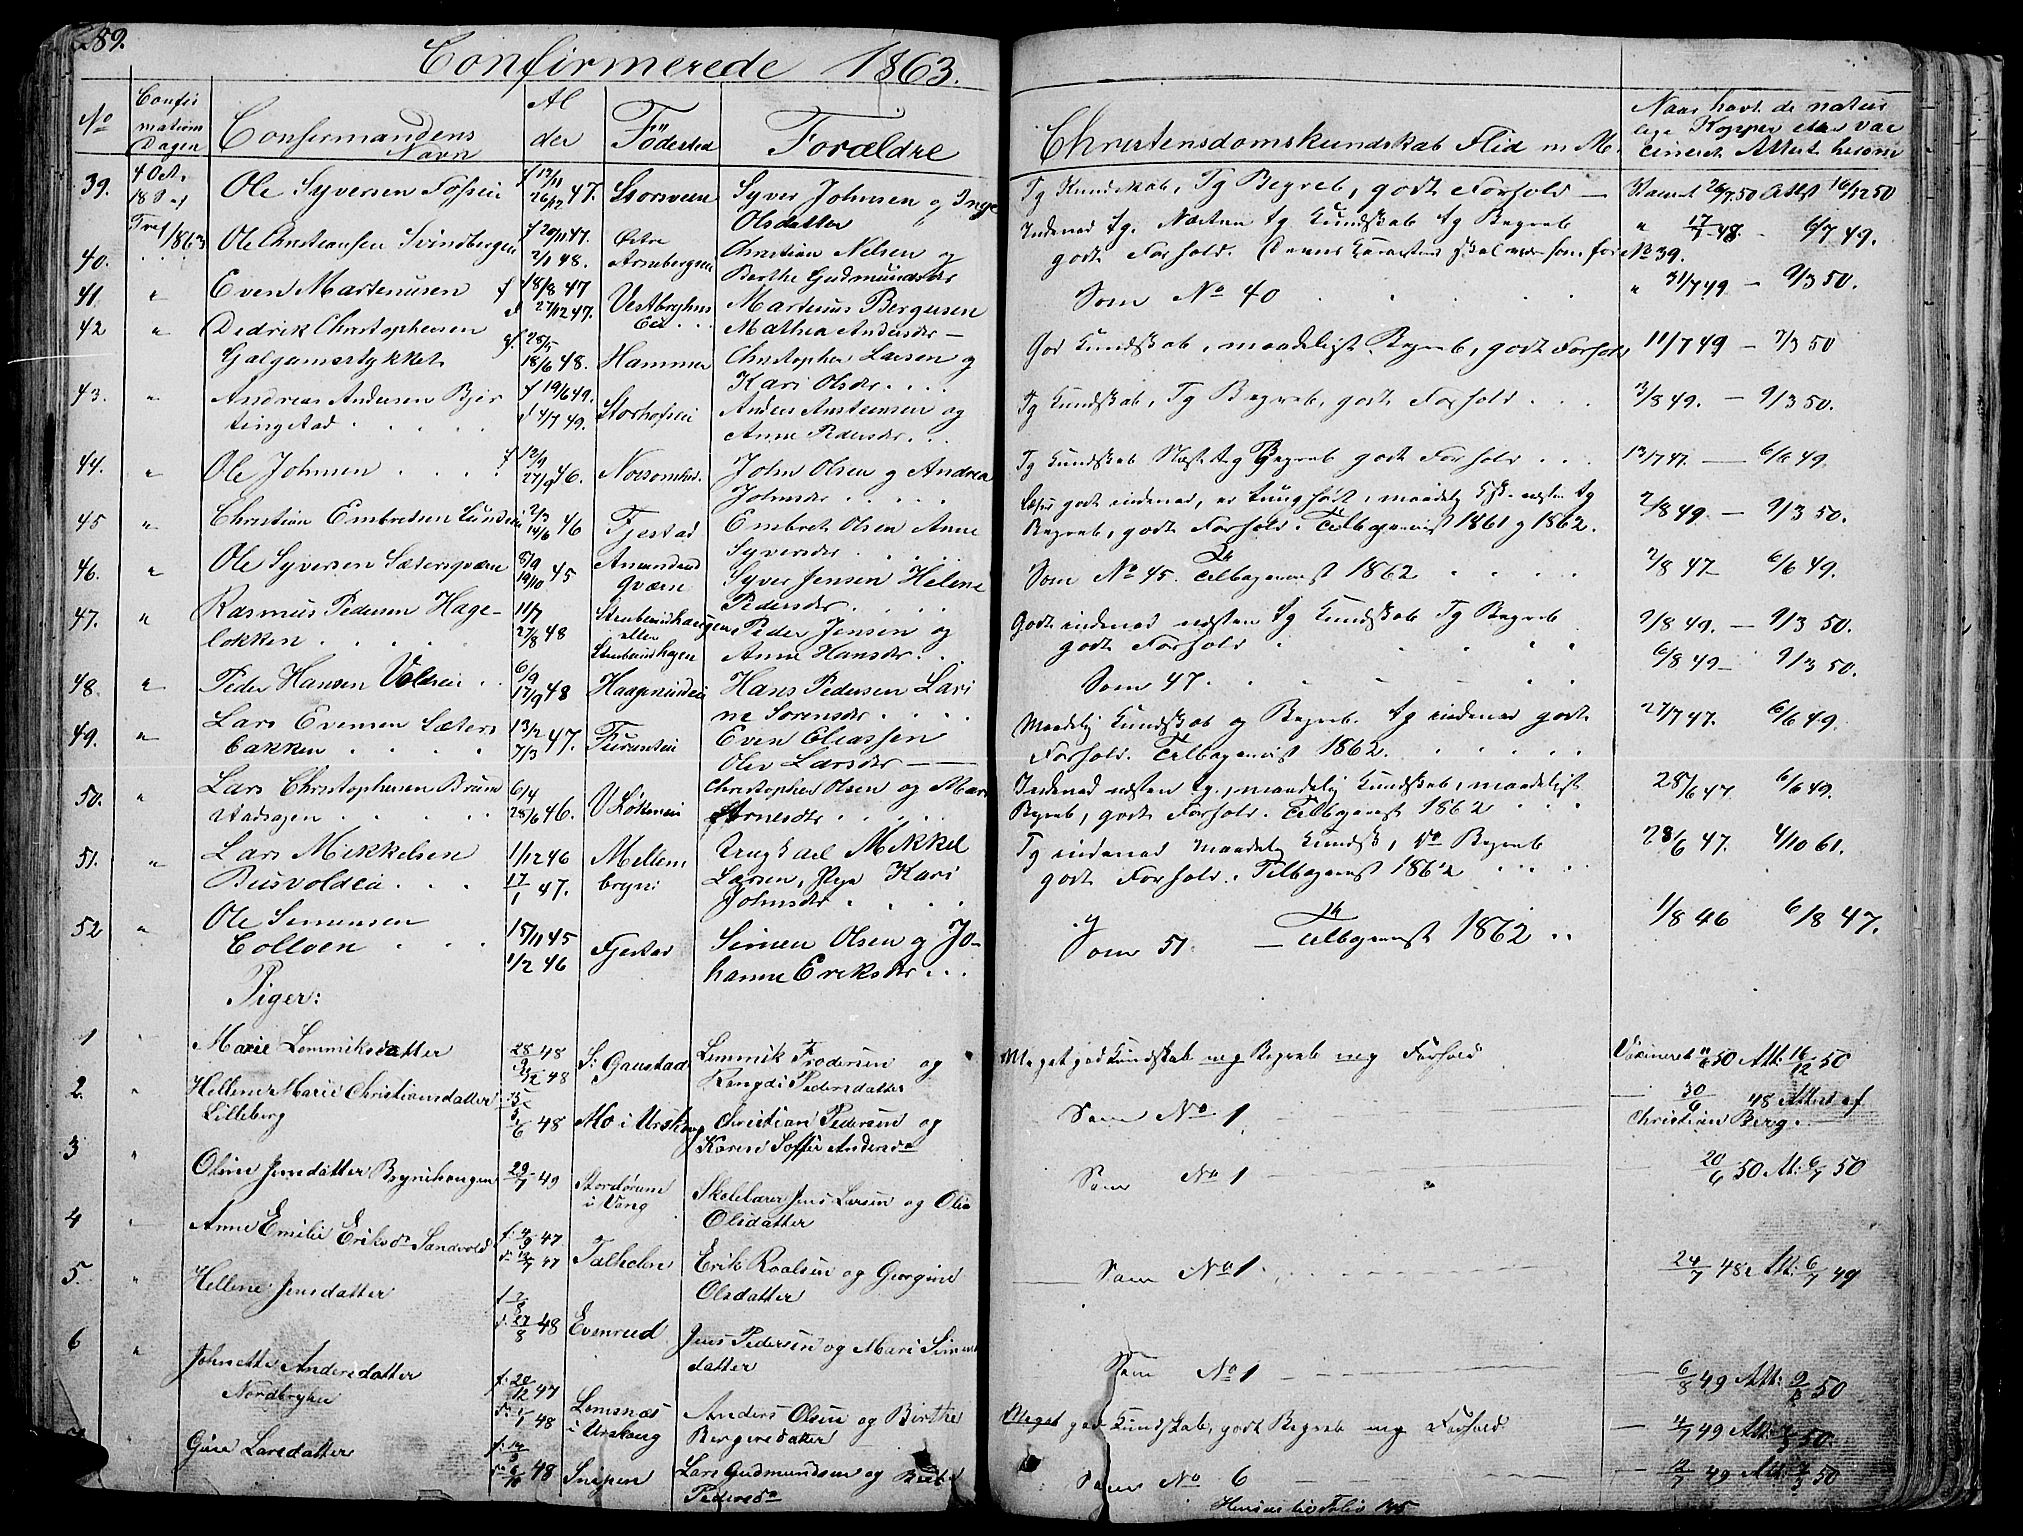 289.
Confirmerede 1863.
No Confirmations Dagen Confirmandens Navn Alder Födested Forældre Christensdomskundskab Flid m M. Naar havt de naturlige Kopper eller vaccineret Attest herom
39. 4 Oct. 18 S. e. Tref 1863 Ole Syversen Fosseie f 17/11 d 26/12 47. Storsveen Syver Johnsen og Inge
Olsdatter
Tg Kundskab, Tg Begreb, godt Forhold — Vaccinet 26/7 50 Attest 16/12 50
40. Ole Christiansen Svindbergeie f 20/11 47. 2/1 48. Østre Arnebergeie Christian Nelsen og
Berthe Gudmundsdr
Indenad tg. Næsten tg Kundskab tg Begreb " 17/7 48. - 6/7 49.
godt Forhold. No 39.
41. " Even Martinusen f 18/8 47 d 27/12 47. Vestbyhus Eie Martinus Bergersen
Mathea Andersdr —
Som No 40 " 31/7 49 — 9/3 50.
42 " Dedrik Christophersen
Galgumstykket f. 28/5 18/6 48. Hammer Christopher Larsen og
Kari Olsdr. . . .
God Kundskab, maadeligt Begreb, godt Forhold 11/7 49 — 9/3 50
43. " Andreas Andersen Bjertingstad f 19/6 49. d 4/7 49. Storhofseie Anders Amstensen og
Anne Pedersdr. . .
Tg Kundskab, Tg Begreb, godt Forhold . . . 3/8 49. — 9/3 50.
44. " Ole Johnsen . . . f 12/9 27/9 46. Norsomhed. John Olsen og Andrea
Johnsdr . . . . .
Tg Kundskab Næst. tg Begreb godt Forhold . . . 13/7 47. — 6/6 49.
45 " Christian Embretsen Lundeie 2/3 14/6 46 Fjestad Embret Olsen Anne
Syversdr . . . .
Læser godt indenad, er tunghört, maadelig Kdsk. næsten tg 7/8 49 — 9/3 50.
Begreb, godt Forhold. Tilbageviist 1861 og 1862.
46. " Ole Syversen Sætersqværn 8/9 19/10 45 Amundrud qværn Syver Jensen Helene
Pedersdr . . . .
Som No 45. Tilbageviist 1862 . . . . 7/8 47 — 6/6 49.
47. " Rasmus Pedersen Hagelokken . . . . 11/7 27/8 48 Steenbundhaugen eller Peder Jensen og
Anne Hansdr. .
Godt indenad næsten tg Kundskab Tg Begreb 9/8 49. — 9/3 50.
godt Forhold
48. " Peder Hansen Velneie . . 6/9 17/9 48 Haagenrudeie Hans Pedersen Lari
ne Sorensdr . . . .
Som 47. 6/8 49 — 9/3 50.
49. " Lars Evensen Sætersbakken . . . . 13/2 7/3 47. Furusteie Even Eliassen
Olev Larsdr — —
Maadelig Kundskab og Begreb. tg indenad godt 27/7 47. 6/6 49.
Forhold. Tilbageviist 1862. . . . . .
50. " Lars Christophersen Brundstadsagen . . . . . 6/4 28/6 46. V Lökeneie Christopher Olsen og Mari
Arnesdr . . . . .
Indenad næsten tg, maadelig Kundskab, maadeligt 28/6 47 6/6 49.
Begreb, godt Forhold. Tilbageviist 1862 . . .
51. " Lars Mikkelsen
Busvoldeie . . . 1/12 46 17/1 47. Mellembryni Ungkarl Mikkel
Larsen, Pige Kari
Johnsdr . . . .
Tg indenad Maadelig Kundsk, Do Begreb 28/6 47. 4/10 61.
godt Forhold. Tilbageviist 1862
52 " Ole Simensen
Colloen . . . 15/11 45 1/2 46 Fjestad Simen Olsen og Jo-
hanne Eriksdr. . .
Som 51 — Tilbageviist 1862 . . 1/8 46 6/8 47.
Piger:
1 " Marie Lemmiksdatter 28/3 48 48 S: Gaustad Lemmik Frodersen og
Rengdi Pedersdatter
Meget god Kundskab mg Begreb mg Forhold Vaxineret 50 Att: 16/12 50
2. " Hellene Marie Christiansdatter
Lilleberg 5/6 48 Mo i Urskoug Christian Pedersen og
Karen Soffie Andersda
Som No 1 — 30/9 48 Attest af
Christian Berg. —
3 " Oline Jensdatter Brynihougen 29/7 49 Stordörum i Vang Skolelærer Jens Larsen og Olia
Olsdatter
Som No 1 20/6 50 At: 6/7 50
4 " Anne Emilie Eriksdr Sandvold f: 4/9 47 d: 12/9 47 Talholen Erik Roalsen og Georgine
Olsdatter
Som No 1. 24/7 48 Att: 6/7 49
5 " Hellene Jensdatter f 7/8 d: 27/8 48 Evenrud Jens Pedersen og Mari Simens
datter
Som No 1 — 6/8 49 Att: 9/3 50
6 " Johnette Andersdatter
Nordbryhn f: 20/12 47 d: 1/1 48 Lemsnæs i Urskoug Anders Olsen og Birthe
Bergersdatter
Meget god Kundskab, godt Begreb mg Forhold — 4/7 49 Att: 50.
7 Gine Larsdatter 48 Snipen Lars Gudmundsen og Berte
Pedersda
Som No 6 — 12/7 49 Att: 9/3 50